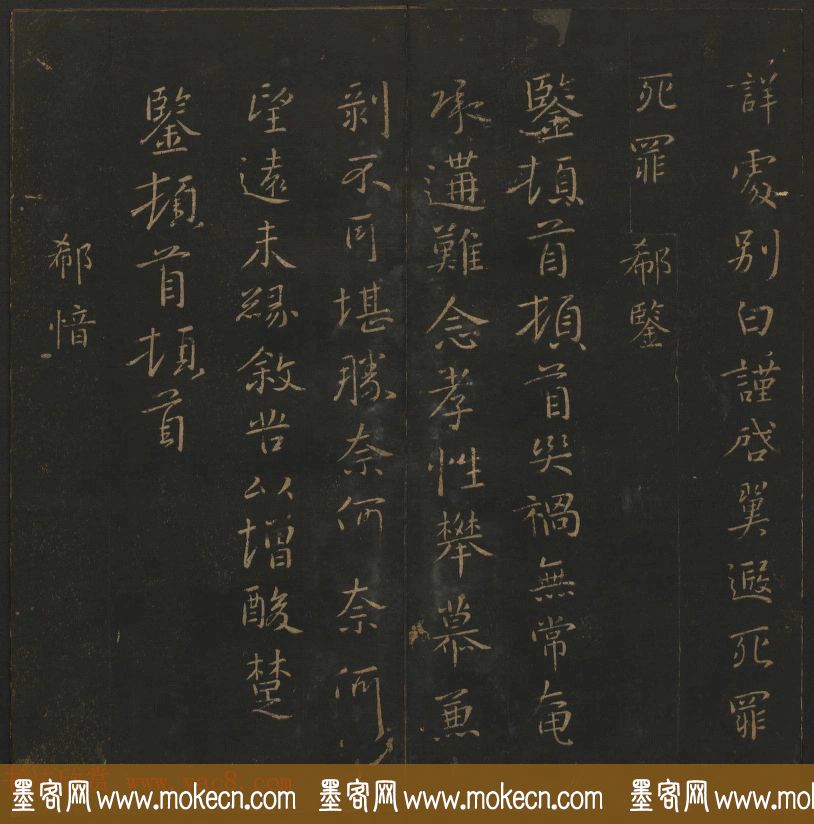 詳處別白謹啓翼遐死罪
死罪
郗鑒
鑒頓首頓首災禍無常奄
承遘難念孝性攀慕兼
剝不可堪勝奈何奈何
望遠未緣敘苦以增酸楚
鑒頓首頓首
郗愔
www.yac8.com
墨客网 www.mokecn.com 墨客网 www.mokecn.com 墨客网 www.mokecn.com